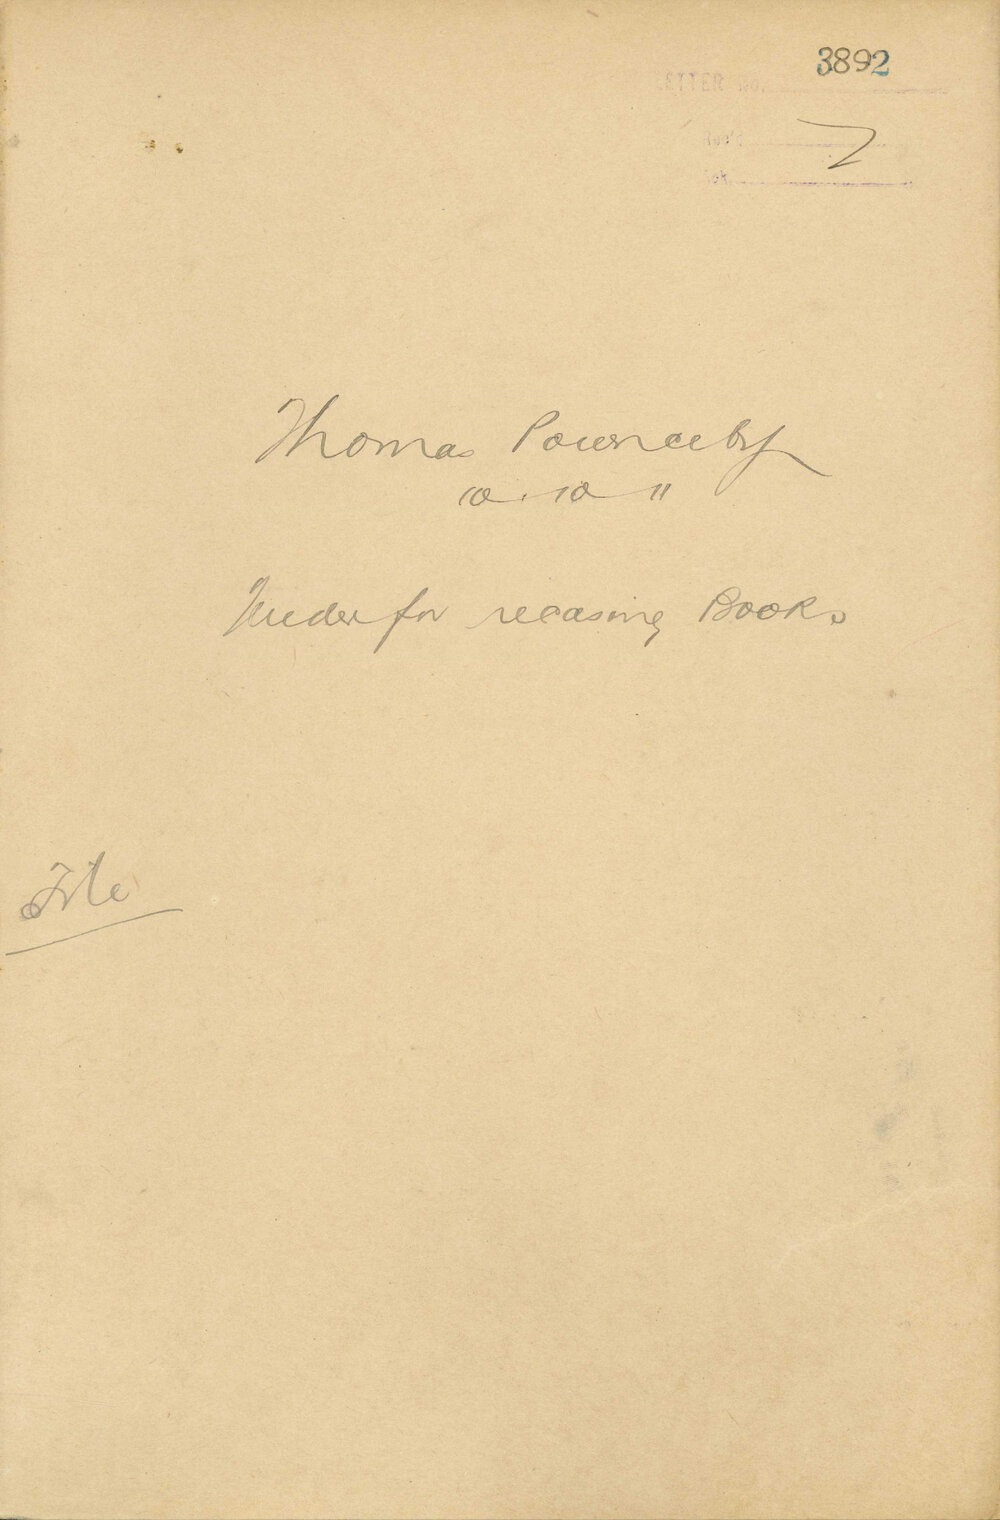 3892
LETTER No.
Rec'd
7
Thomas Pownceby
10.10 11
Tender for recasing Books
File